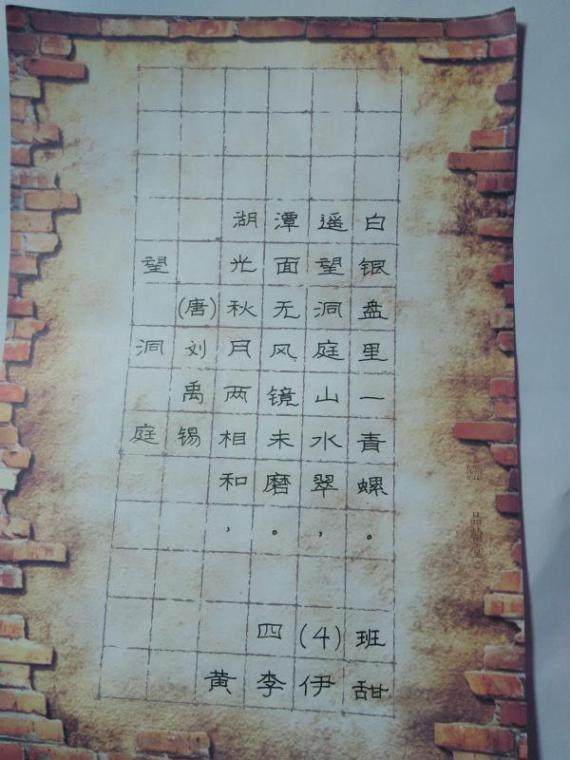 望洞庭
(唐)刘禹锡
湖光秋月两相和，
潭面无风镜未磨。
遥望洞庭山水翠，
白银盘里一青螺。
四(4)班
黄李伊甜